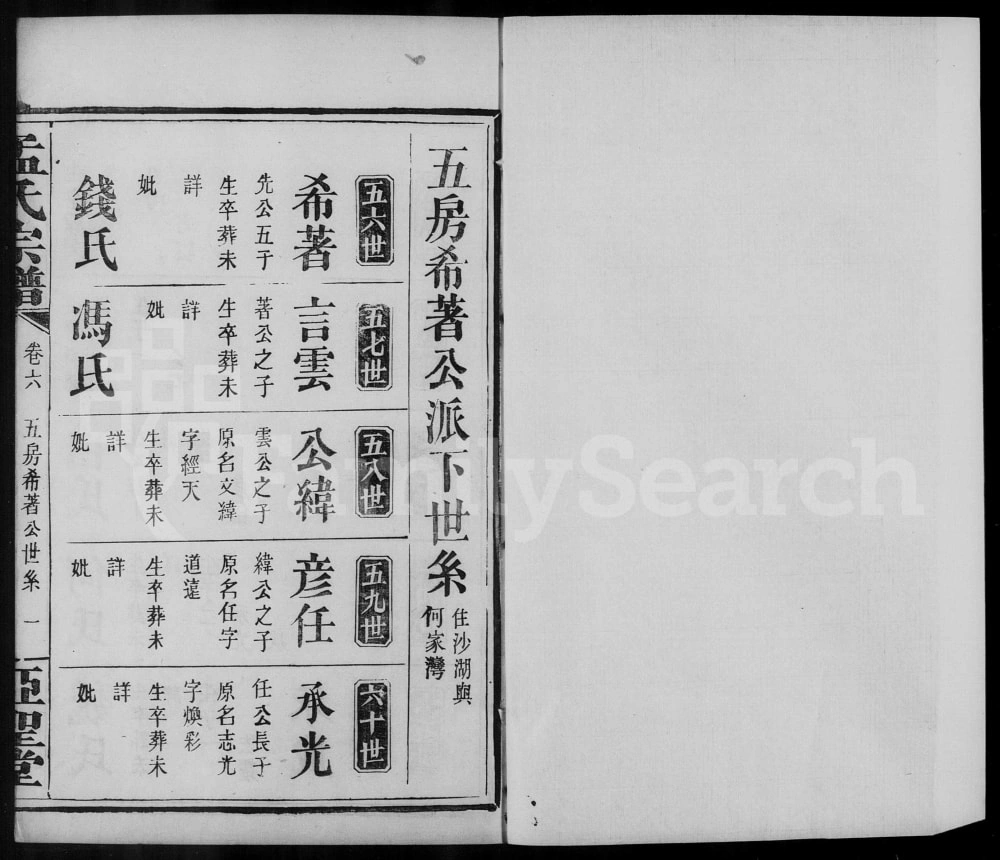 五房希著公派下世系
住沙湖與
何家灣
五六世
希著
先公五子
生卒葬未
詳
妣
錢氏
五七世
言雲
著公之子
生卒葬未
詳
妣
馮氏
五八世
公緯
雲公之子
原名文緯
字經天
生卒葬未
詳
妣
五九世
彦任
緯公之子
原名任字
道遠
生卒葬未
詳
妣
六十世
承光
任公長子
原名志光
字煥彩
生卒葬未
詳
妣
孟氏宗譜
卷六
五房希著公世系
一
亞聖堂
FamilySearch